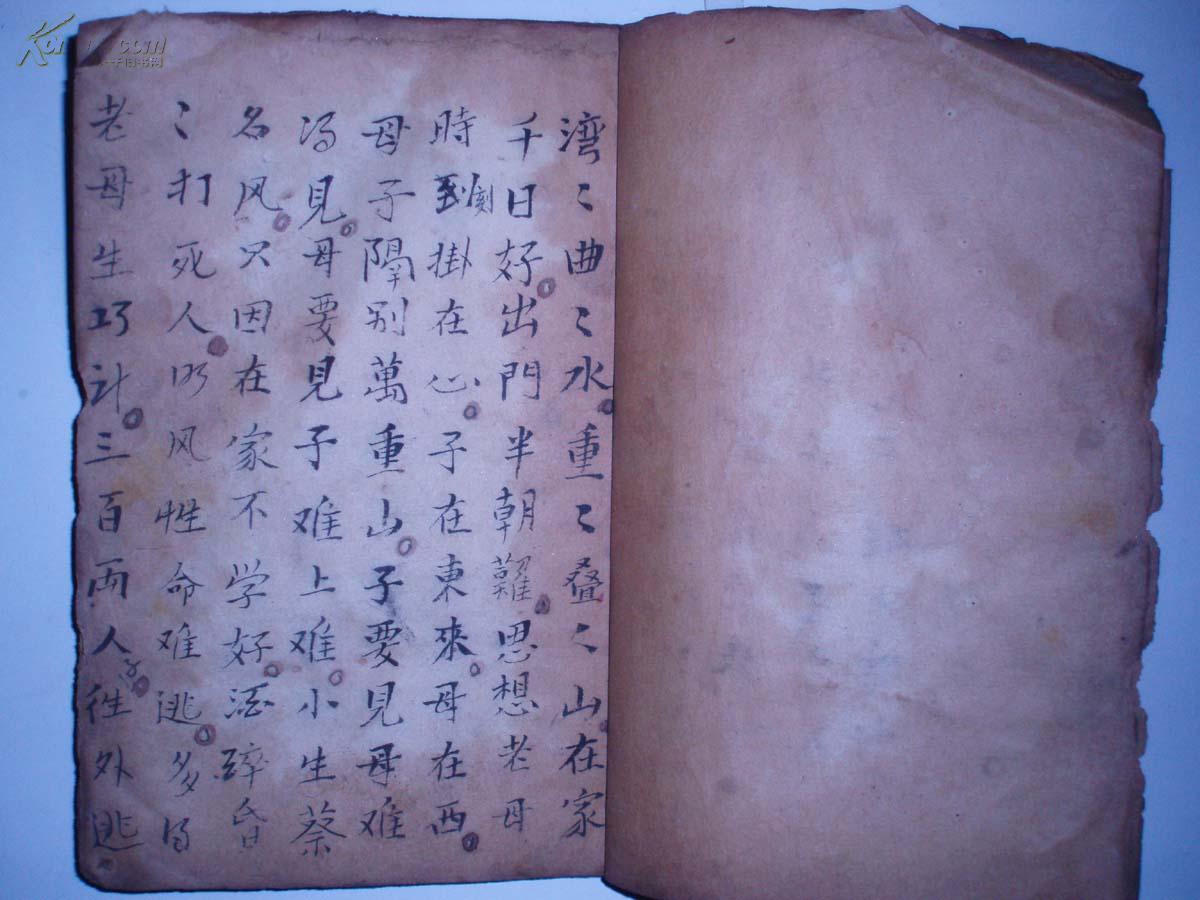 湾〻曲〻水重〻叠〻山在家
千日好出門半朝難思想老母
時刻到掛在心子在東來母在西
母子隔别萬重山子要見母难
得見母要見子难上难小生蔡
名风只因在家不学好酒碎昏
〻打死人的风性命难逃多得
老母生巧计三百両人子往外逃